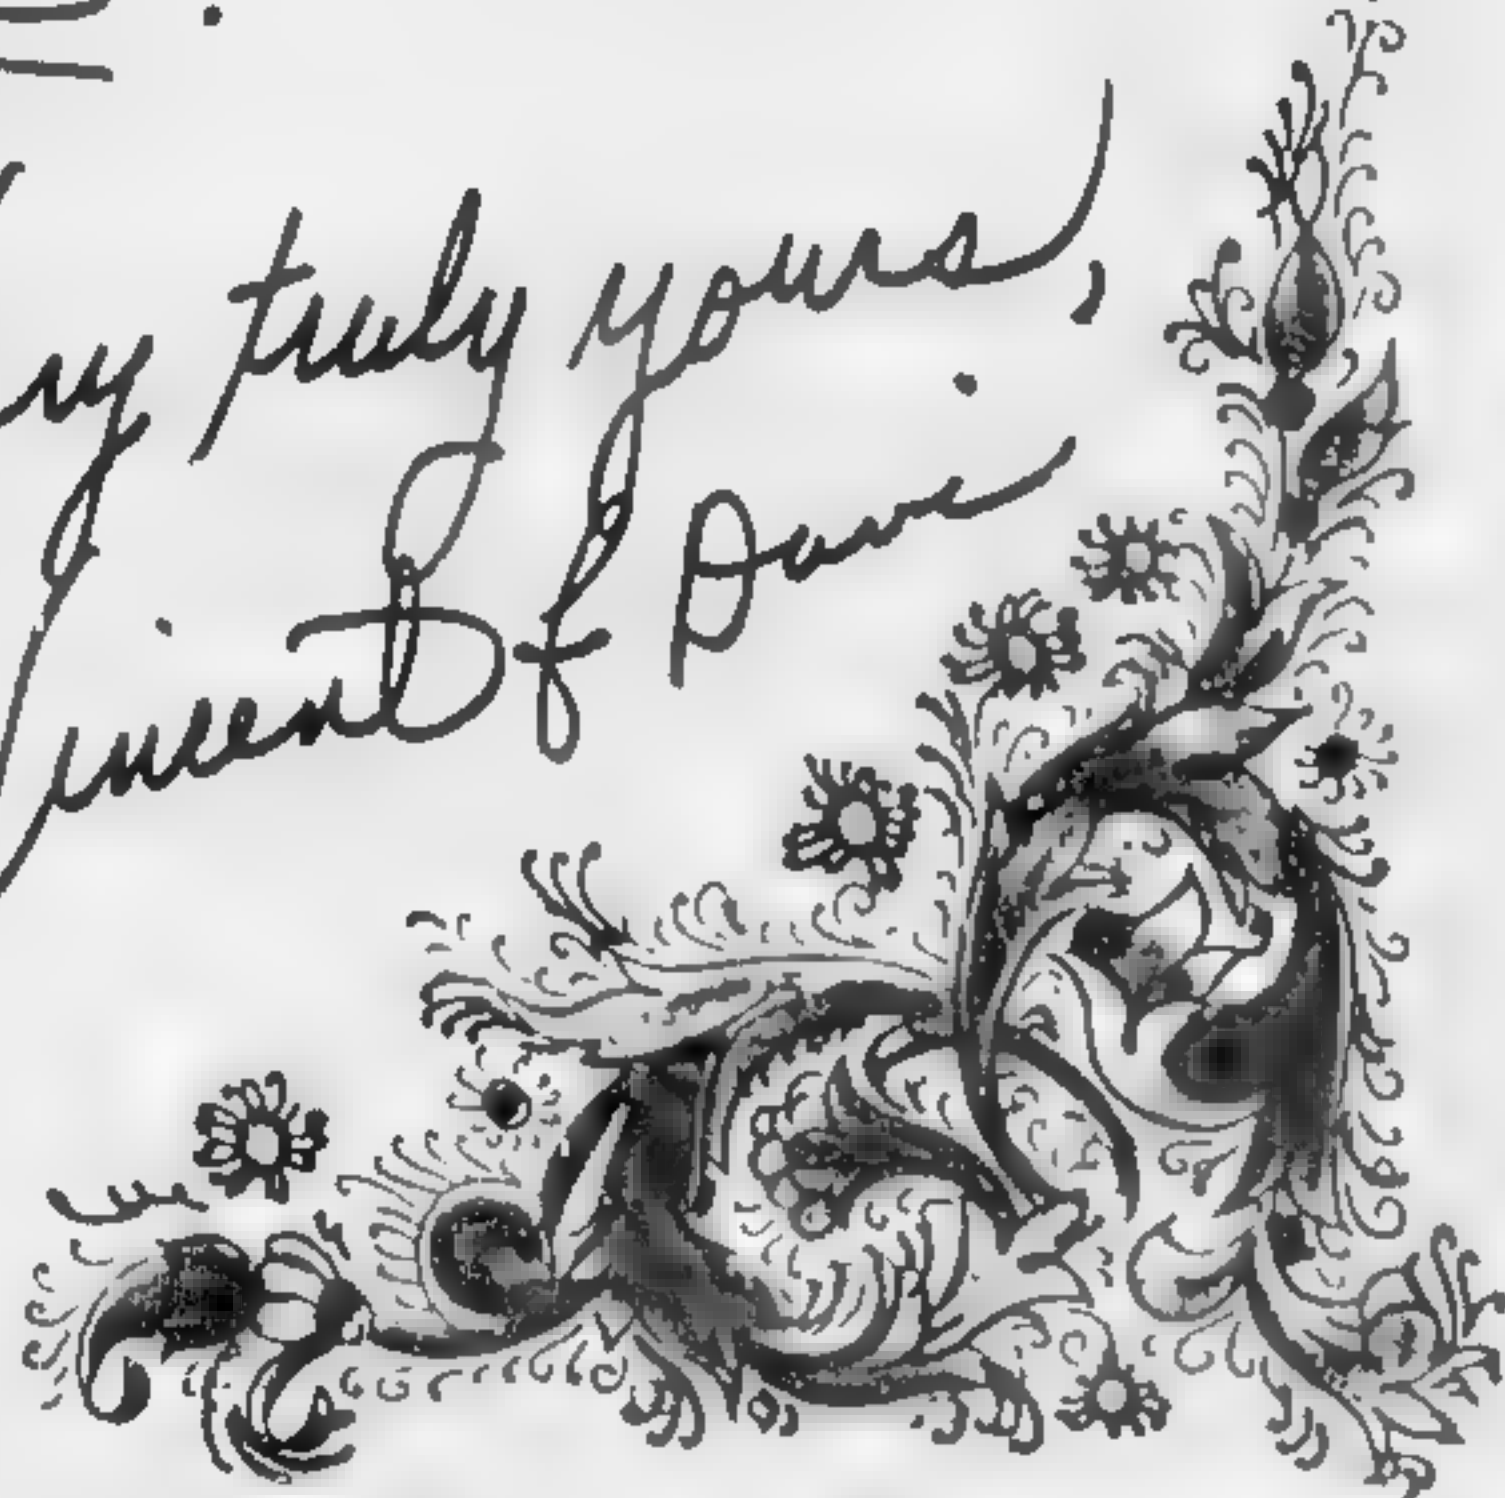 ry truly yours,
Vincent of Davi